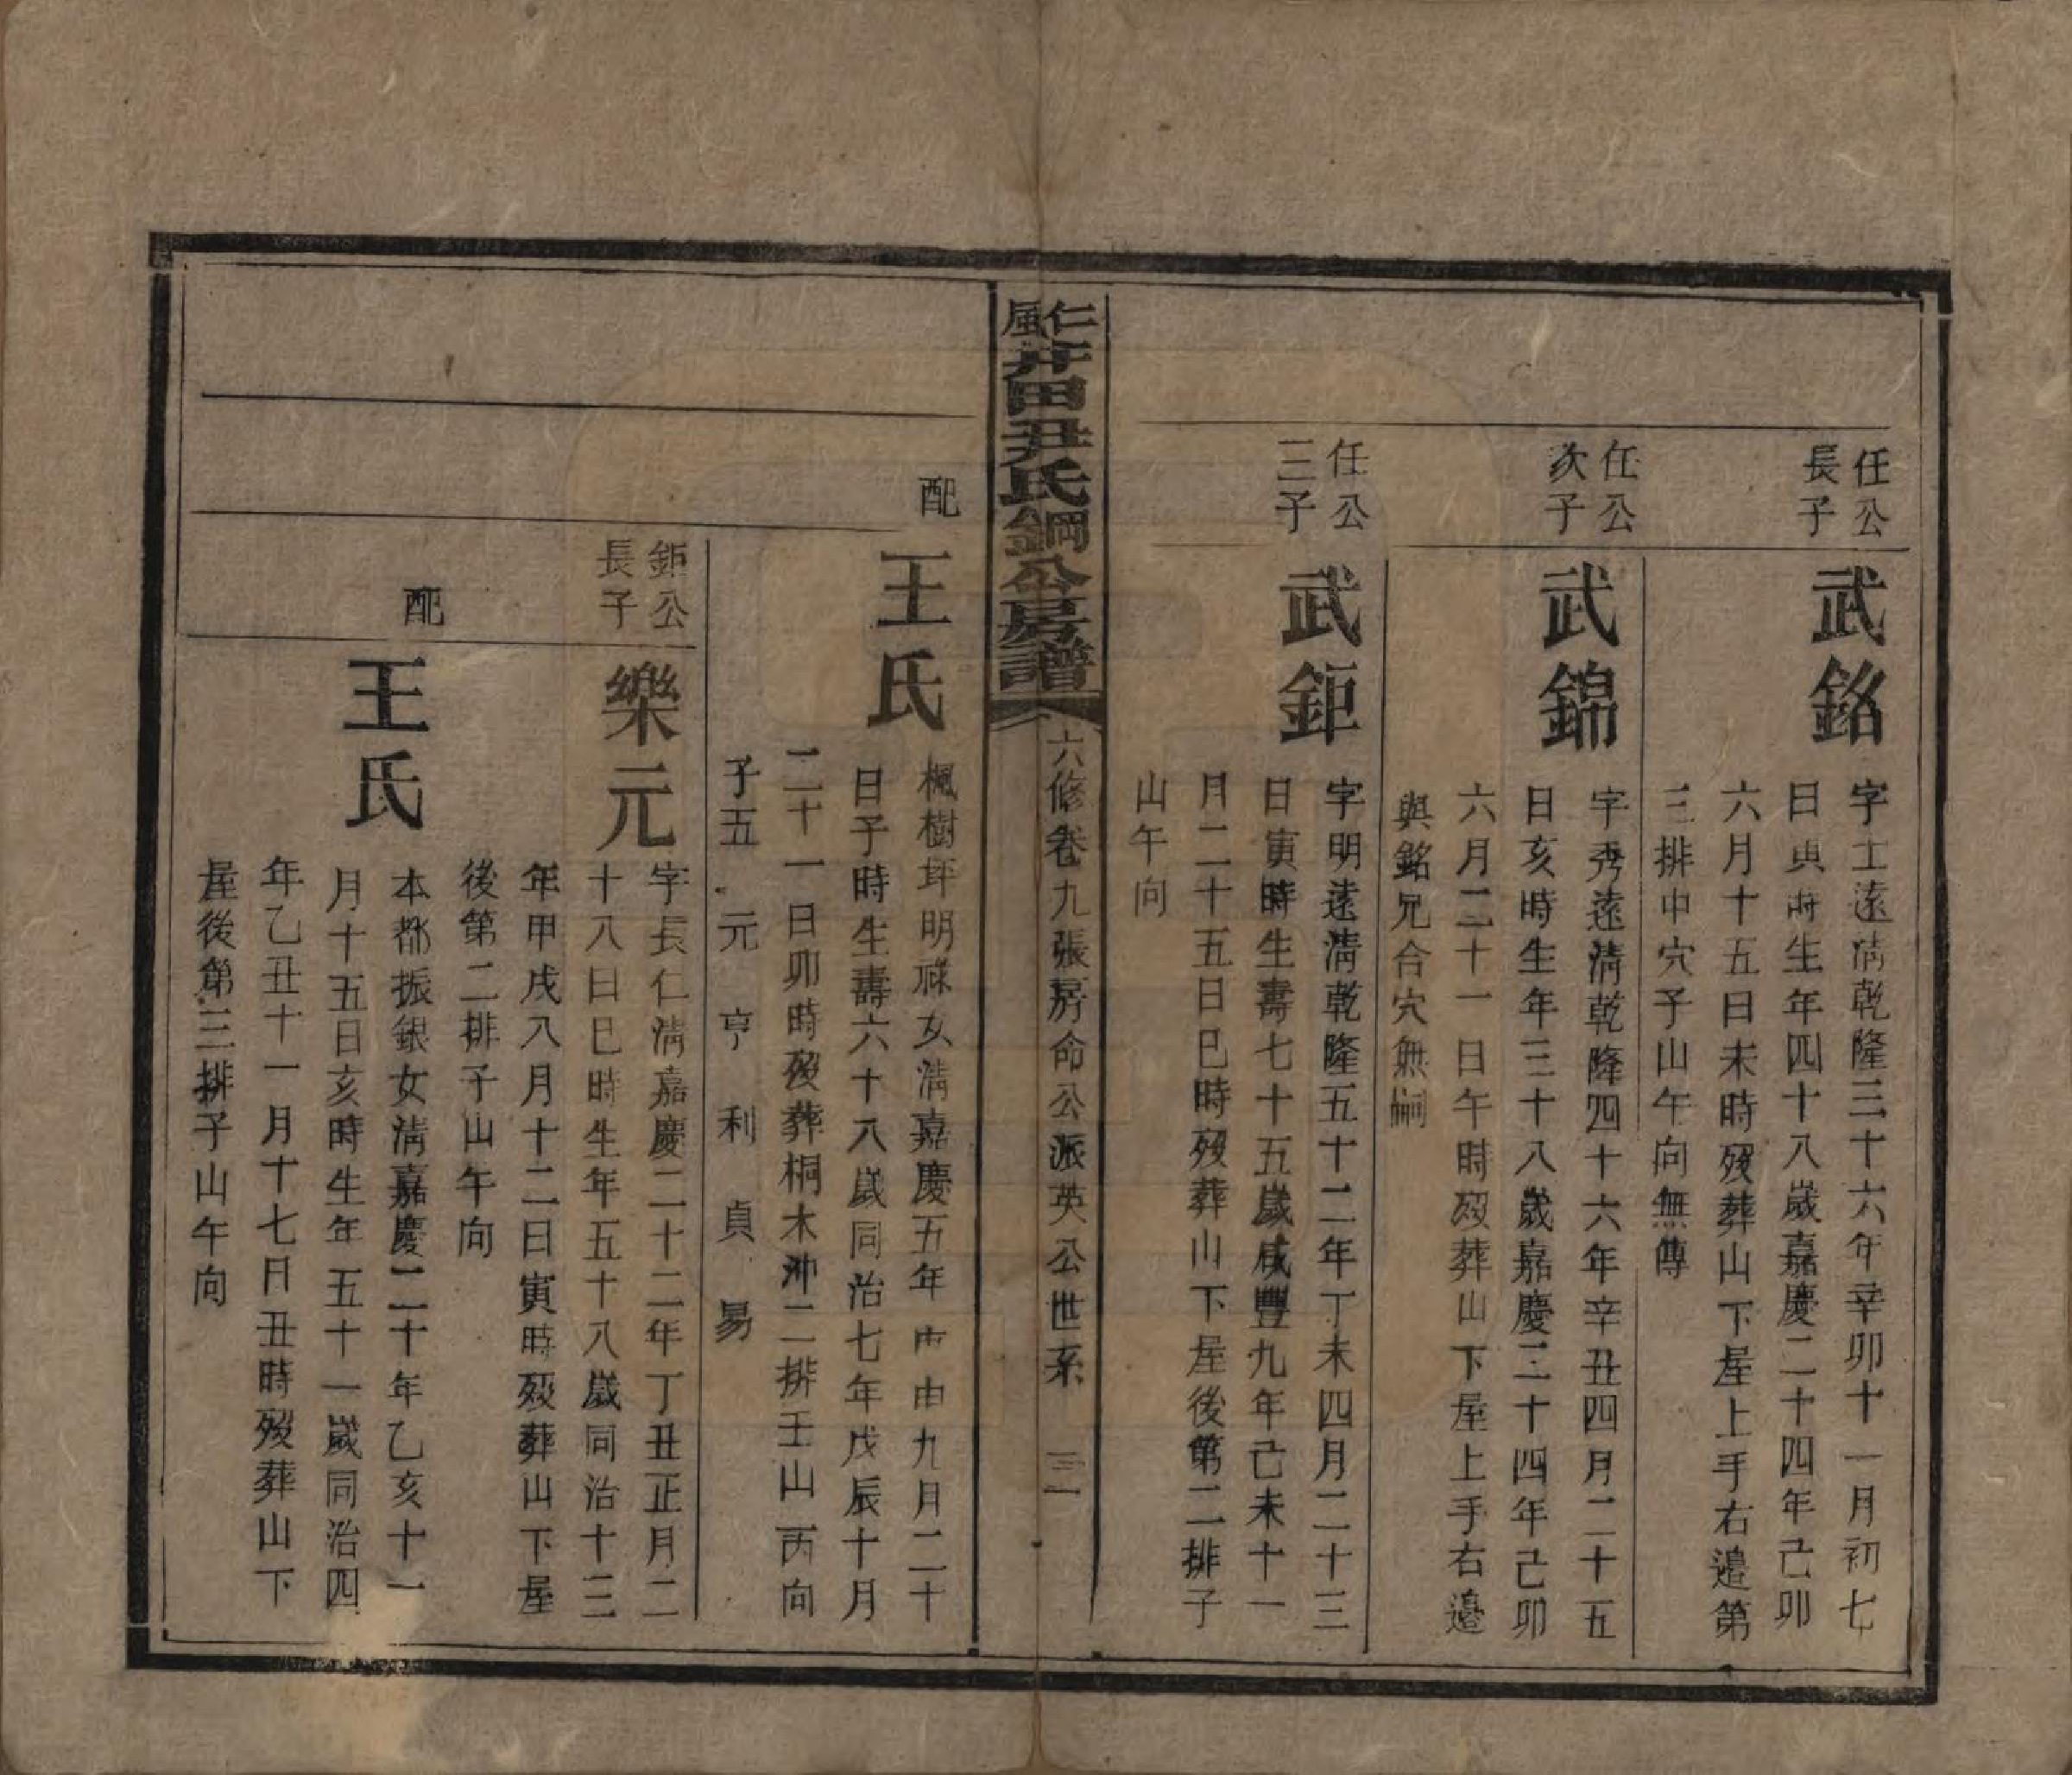 任公
長子
武銘
字士遠清乾隆三十六年辛卯十一月初七
日寅時生年四十八歲嘉慶二十四年己卯
六月十五日未時歿葬山下屋上手右邉第
三排中穴子山午向無傳
任公
次子
武錦
字秀遠清乾隆四十六年辛丑四月二十五
日亥時生年三十八歲嘉慶二十四年己卯
六月二十一日午時歿葬山下屋上手右邉
與銘兄合穴無嗣
任公
三子
武鉅
字明遠清乾隆五十二年丁未四月二十三
日寅時生壽七十五歲咸豐九年己未十一
月二十五日巳時歿葬山下屋後第二排子
山午向
仁風井田尹氏鋼公房譜
六修卷九張房命公派英公世系 三一
配
王氏
楓樹坪明祿女清嘉慶五年申九月二十
日子時生壽六十八歲同治七年戊辰十月
二十一日卯時歿葬桐木冲二排壬山丙向
子五 元 亨 利 貞 易
鉅公
長子
樂元
字長仁清嘉慶二十二年丁丑正月二
十八日巳時生年五十八歲同治十三
年甲戌八月十二日寅時歿葬山下屋
後第二排子山午向
配
王氏
本都振銀女清嘉慶二十年乙亥十一
月十五日亥時生年五十一歲同治四
年乙丑十一月十七日丑時歿葬山下
屋後第三排子山午向